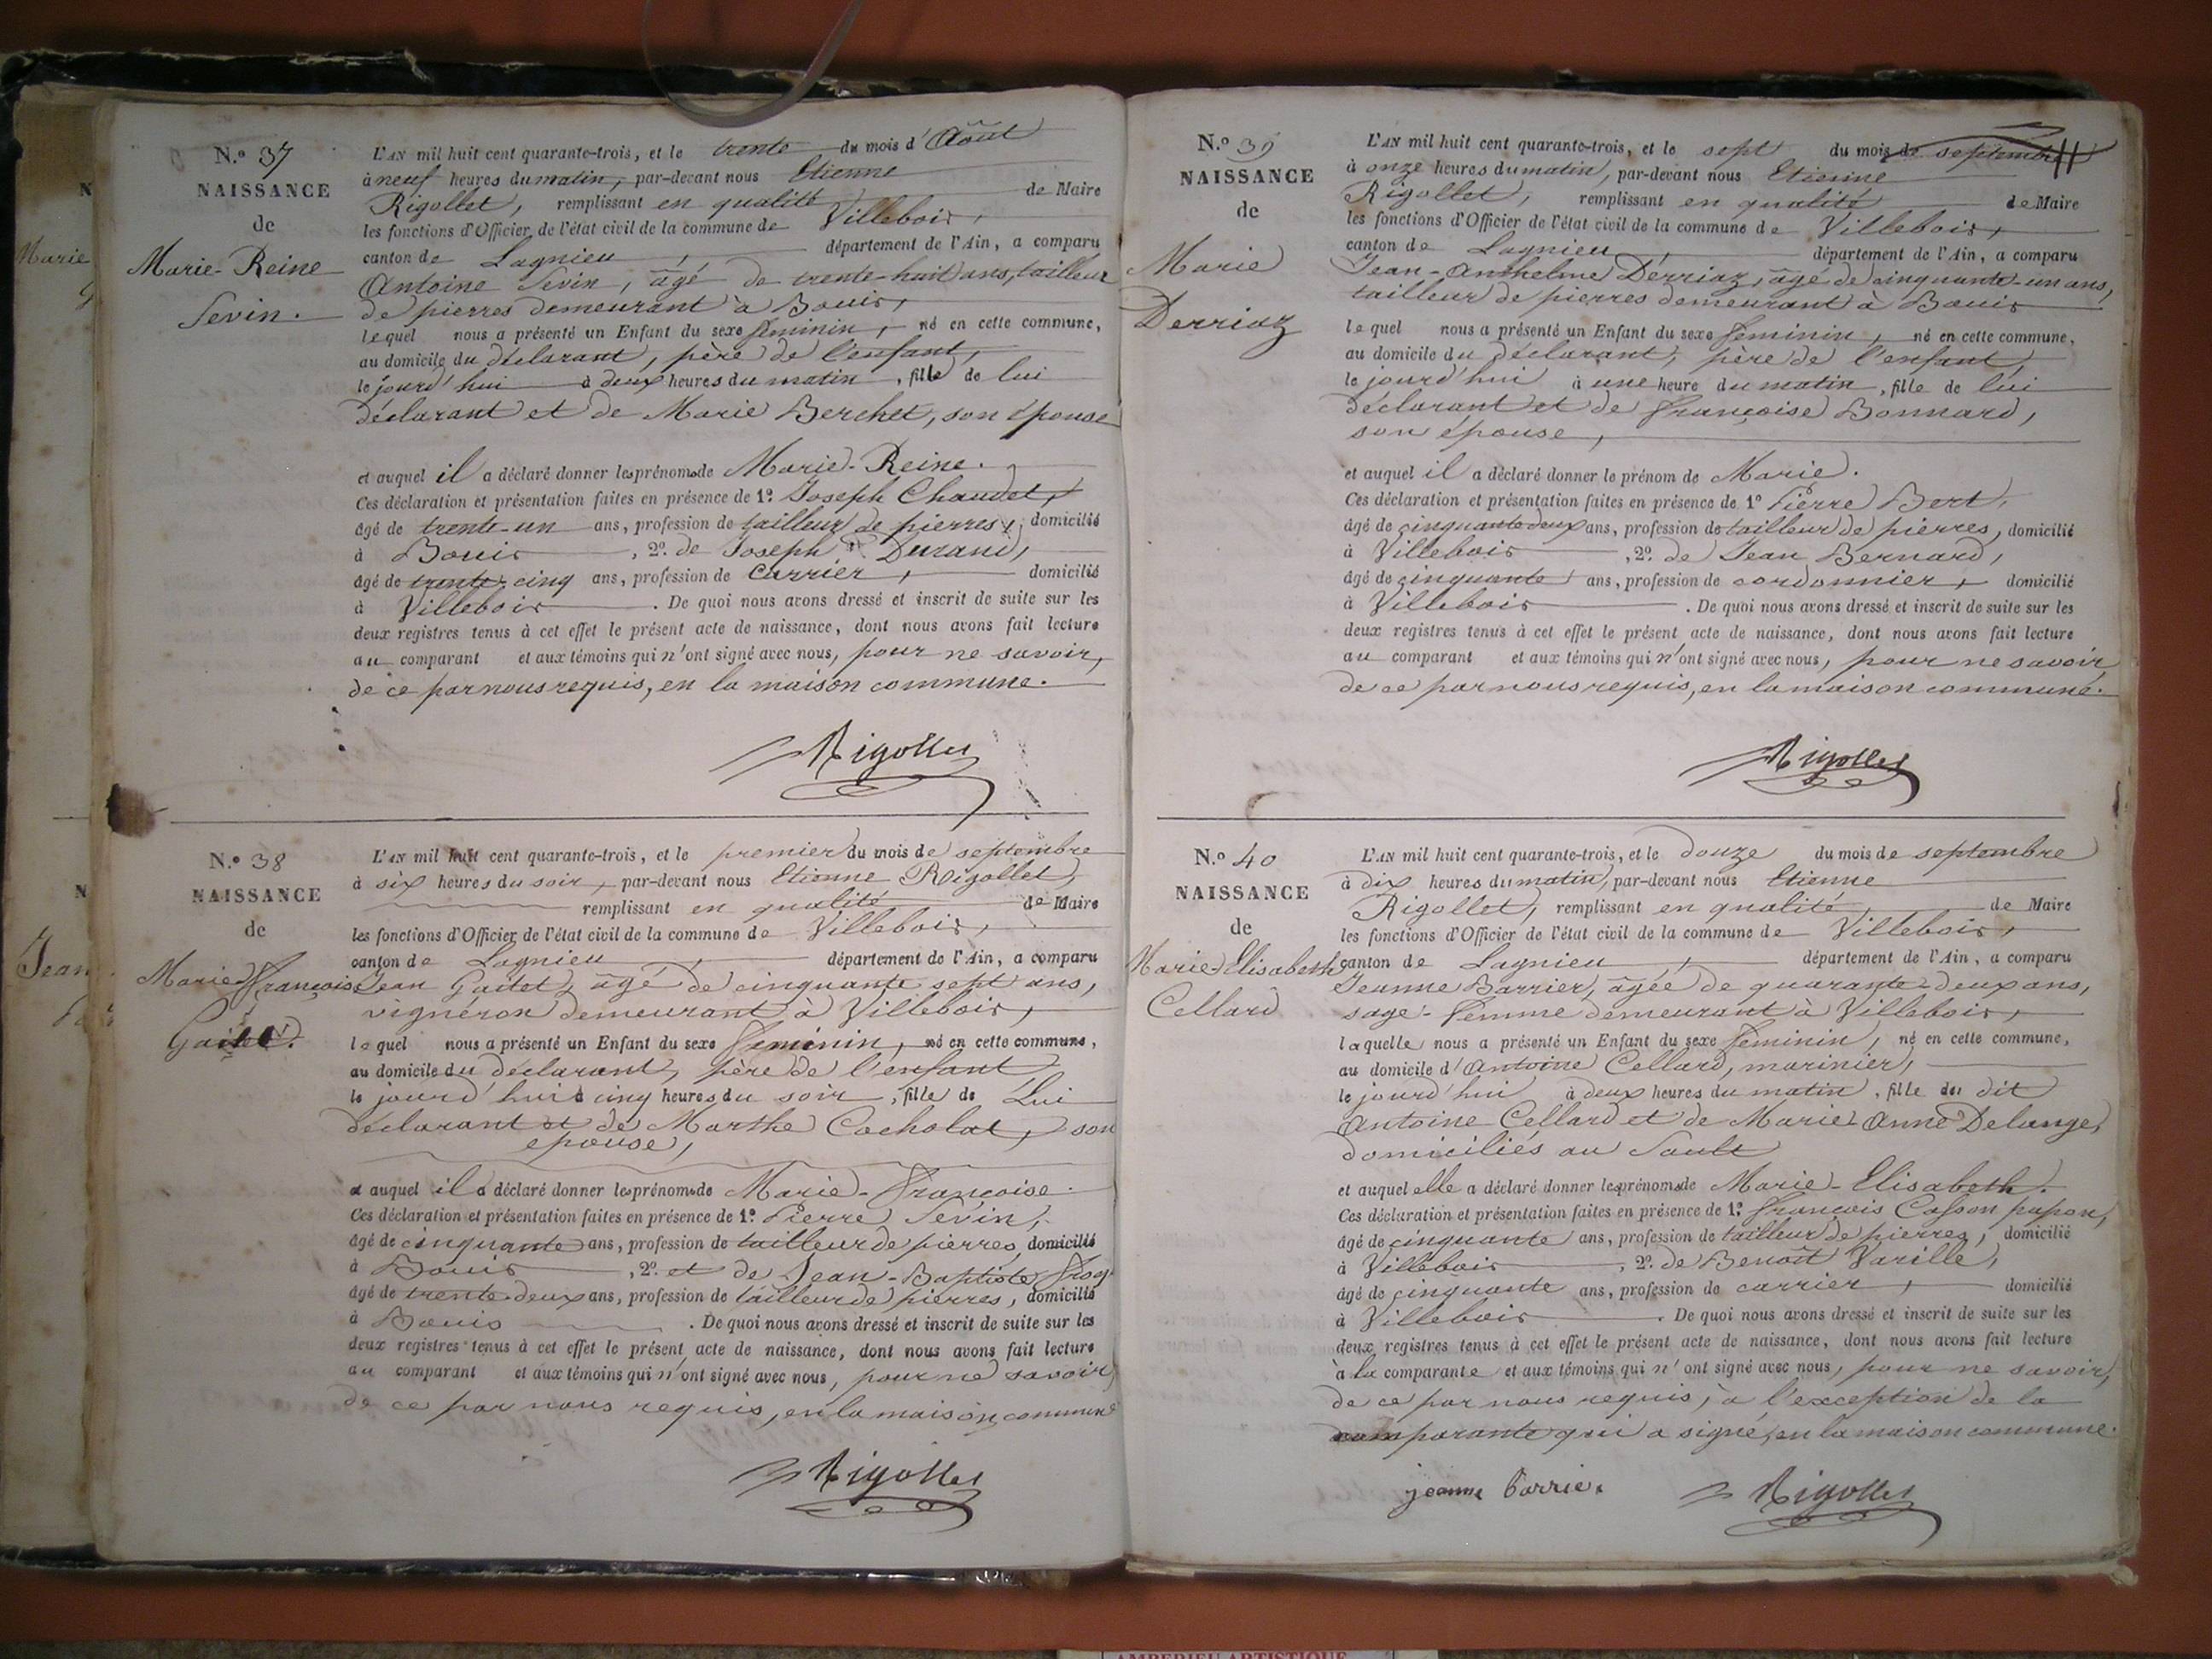 N.o 37
NAISSANCE
de
Marie-Reine
Sevin.
L'AN mil huit cent quarante-trois, et le trente du mois d'Août
à neuf heures du matin, par-devant nous Etienne
Rigollet, remplissant en qualité de Maire
les fonctions d'Officier de l'état civil de la commune de Villebois,
canton de Lagnieu, département de l'Ain, a comparu
Antoine Sevin, âgé de trente-huit ans, tailleur
de pierres demeurant à Bouis,
lequel nous a présenté un Enfant du sexe féminin, né en cette commune,
au domicile du déclarant, père de l'enfant,
le jourd'hui à deux heures du matin, fille de lui
déclarant et de Marie Berchet, son épouse
et auquel il a déclaré donner les prénoms de Marie-Reine.
Ces déclaration et présentation faites en présence de 1.o Joseph Chaudet,
âgé de trente-un ans, profession de tailleur de pierres, domicilié
à Bouis, 2.o de Joseph Durand,
âgé de trente-cinq ans, profession de carrier, domicilié
à Villebois. De quoi nous avons dressé et inscrit de suite sur les
deux registres tenus à cet effet le présent acte de naissance, dont nous avons fait lecture
au comparant et aux témoins qui n'ont signé avec nous, pour ne savoir,
de ce par nous requis, en la maison commune.
Rigollet
N.o 38
NAISSANCE
de
Marie Françoise
Gaitet.
L'AN mil huit cent quarante-trois, et le premier du mois de septembre
à six heures du soir, par-devant nous Etienne Rigollet,
remplissant en qualité de Maire
les fonctions d'Officier de l'état civil de la commune de Villebois,
canton de Lagnieu, département de l'Ain, a comparu
Jean Gaitet, âgé de cinquante sept ans,
vignéron demeurant à Villebois,
lequel nous a présenté un Enfant du sexe féminin, né en cette commune,
au domicile du déclarant, père de l'enfant
le jourd'hui à cinq heures du soir, fille de Lui
déclarant et de Marthe Cocholat, son
epouse,
et auquel il a déclaré donner les prénoms de Marie-Françoise.
Ces déclaration et présentation faites en présence de 1.o Pierre Sevin,
âgé de cinquante ans, profession de tailleur de pierres, domicilié
à Bouis, 2.o et de Jean-Baptiste
âgé de trente-deux ans, profession de tailleur de pierres, domicilié
à Bouis. De quoi nous avons dressé et inscrit de suite sur les
deux registres tenus à cet effet le présent acte de naissance, dont nous avons fait lecture
au comparant et aux témoins qui n'ont signé avec nous, pour ne savoir,
de ce par nous requis, en la maison commune
Rigollet
N.o 39
NAISSANCE
de
Marie
Derriaz
L'AN mil huit cent quarante-trois, et le sept du mois de septembre
à onze heures du matin, par-devant nous Etienne
Rigollet, remplissant en qualité de Maire
les fonctions d'Officier de l'état civil de la commune de Villebois,
canton de Lagnieu, département de l'Ain, a comparu
Jean-Anthelme Derriaz, âgé de cinquante-un ans,
tailleur de pierres demeurant à Bouis
lequel nous a présenté un Enfant du sexe féminin, né en cette commune,
au domicile du déclarant, père de l'enfant,
le jourd'hui à une heure du matin, fille de lui
déclarant et de Françoise Bonnard,
son épouse,
et auquel il a déclaré donner le prénom de Marie.
Ces déclaration et présentation faites en présence de 1o Pierre Bert,
âgé de cinquante deux ans, profession de tailleur de pierres, domicilié
à Villebois, 2o. de Jean Bernard,
âgé de cinquante ans, profession de cordonnier, domicilié
à Villebois. De quoi nous avons dressé et inscrit de suite sur les
deux registres tenus à cet effet le présent acte de naissance, dont nous avons fait lecture
au comparant et aux témoins qui n'ont signé avec nous, pour ne savoir,
de ce par nous requis, en la maison commune.
Rigollet
N.o 40
NAISSANCE
de
Marie-Elisabeth
Cellard
L'AN mil huit cent quarante-trois, et le Douze du mois de septembre
à dix heures du matin, par-devant nous Etienne
Rigollet, remplissant en qualité de Maire
les fonctions d'Officier de l'état civil de la commune de Villebois,
canton de Lagnieu, département de l'Ain, a comparu
Jeanne Barrier, âgée de quarante-deux ans,
sage-femme demeurant à Villebois,
laquelle nous a présenté un Enfant du sexe féminin, né en cette commune,
au domicile d'Antoine Cellard, marinier,
le jourd'hui à deux heures du matin, fille du dit
Antoine Cellard et de Marie-Anne Delange,
domiciliés au Sault
et auquel elle a déclaré donner les prénoms de Marie-Elisabeth.
Ces déclaration et présentation faites en présence de 1.o François Casson papon,
âgé de cinquante ans, profession de tailleur de pierres, domicilié
à Villebois, 2o. de Benoît Varille,
âgé de cinquante ans, profession de carrier, domicilié
à Villebois. De quoi nous avons dressé et inscrit de suite sur les
deux registres tenus à cet effet le présent acte de naissance, dont nous avons fait lecture
à la comparante et aux témoins qui n'ont signé avec nous, pour ne savoir,
de ce par nous requis, à l'exception de la
comparante qui a signé, en la maison commune.
jeanne barrier
Rigollet
Marie
Jean
AMBERIEU ARTISTIQUE